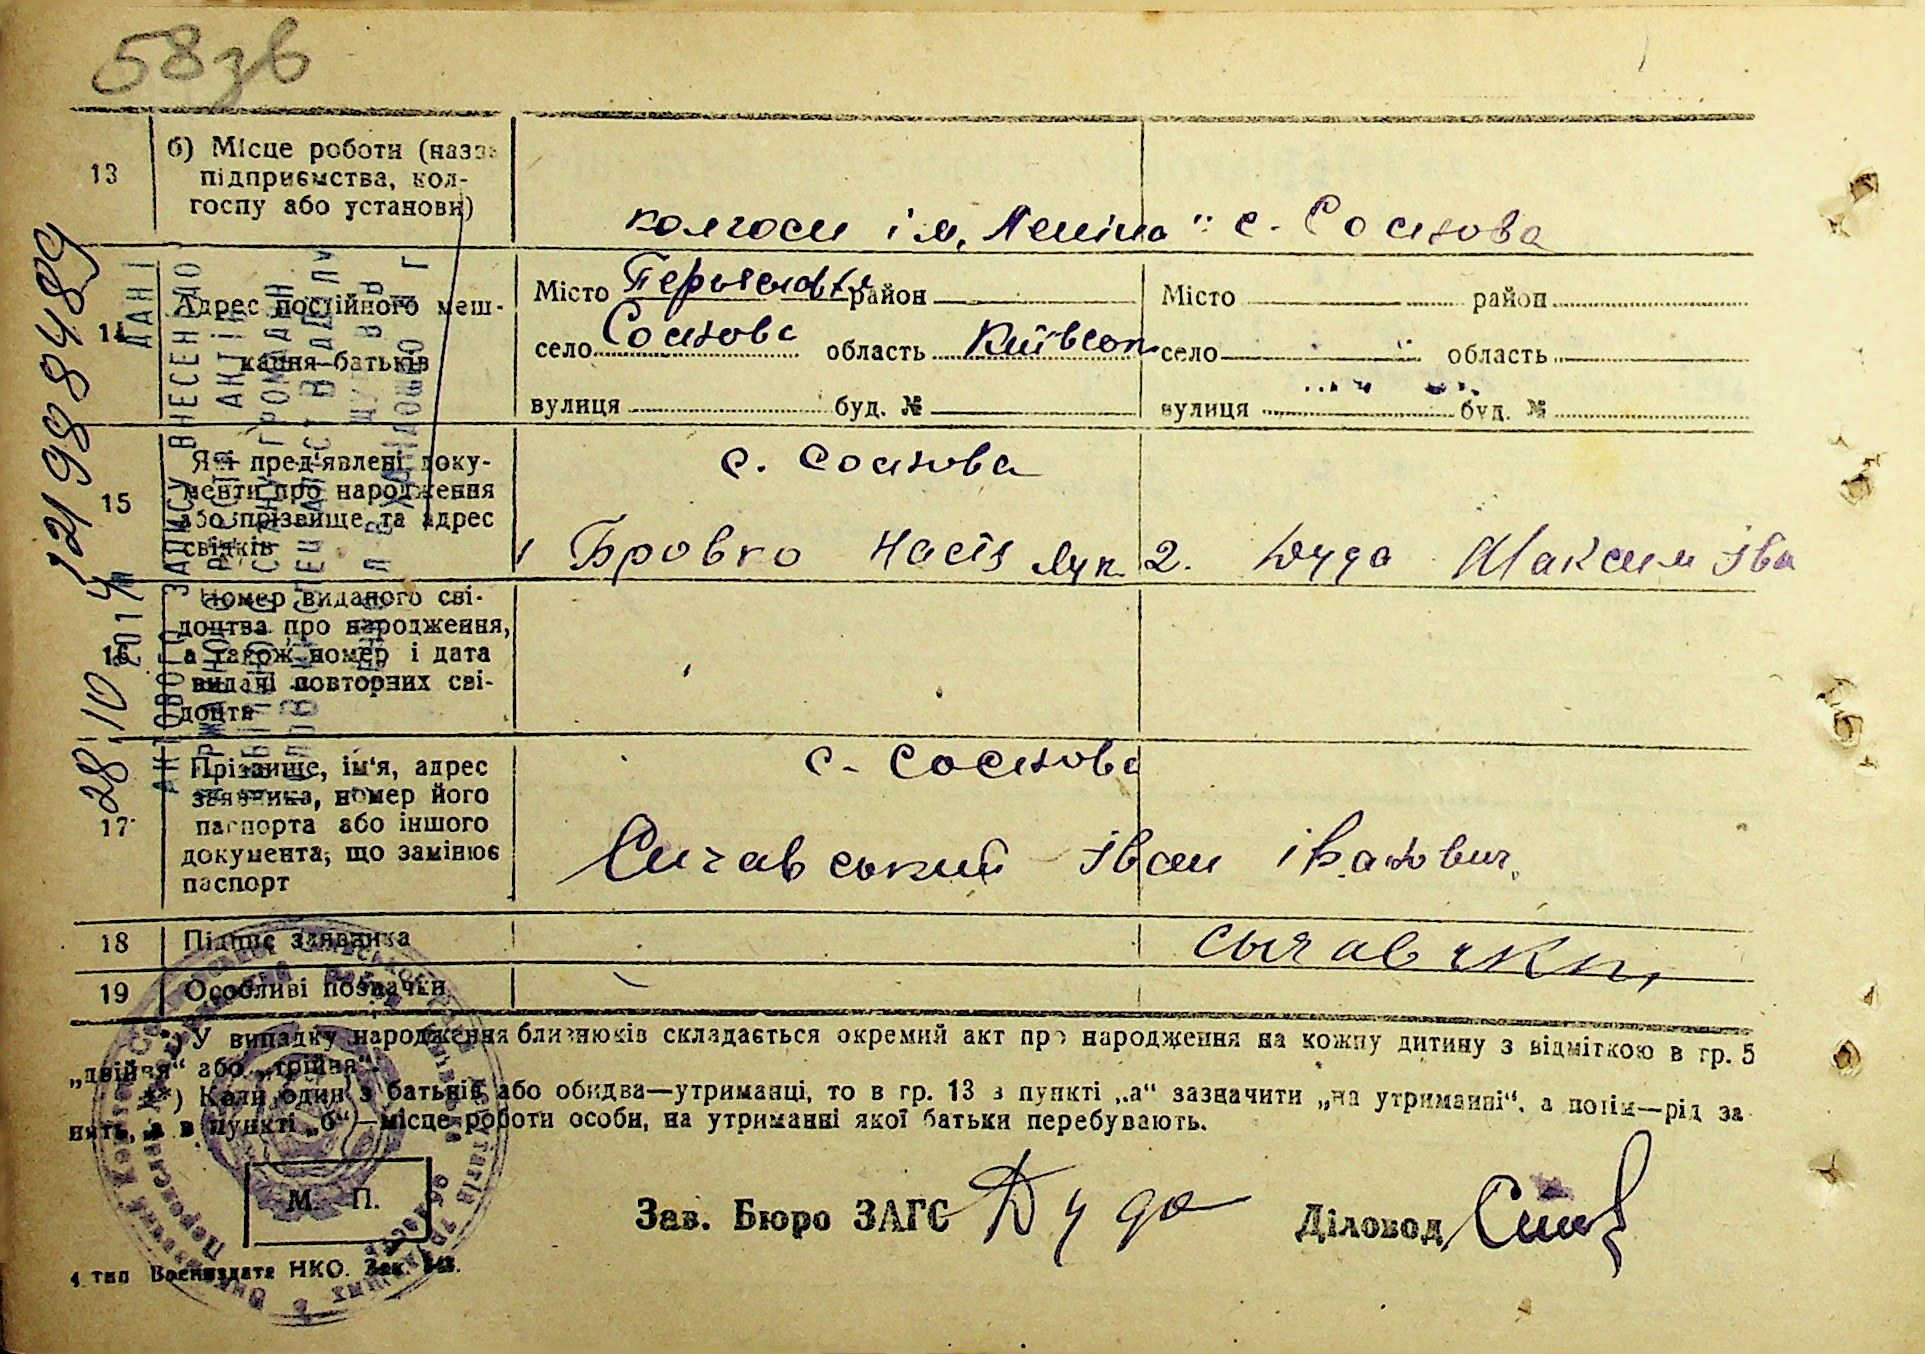 58зв
13
б) Місце роботи (назва
підприємства, кол-
госпу або установи)
колгосп ім. "Леніна" с. Соснова
14
Адрес постійного меш-
кання батьків
Місто район
село Соснова область Київськ
вулиця буд. №
Місто район
село " область
вулиця буд. №
15
Які пред'явлені доку-
менти про народження
або прізвище та адрес
свідків
с. Соснова
1 Бровко Настя Лук. 2. Дуда Максим Іва
16
Номер виданого сві-
доцтва про народження,
а також номер і дата
видачі повторних сві-
доцтв
17
Прізвище, ім'я, адрес
заявника, номер його
паспорта або іншого
документа, що замінює
паспорт
с. Соснова
Сичавський Іван Іванович
18
Підпис заявника
19
Особливі позначки
*) У випадку народження близнюків складається окремий акт про народження на кожну дитину з відміткою в гр. 5
„двійня“ або „трійня“.
**) Коли один з батьків або обидва—утриманці, то в гр. 13 в пункті „а“ зазначити „на утриманні“, а потім—рід за
нять, а в пункті „б“—місце роботи особи, на утриманні якої батьки перебувають.
М. П.
Зав. Бюро ЗАГС Дуда
Діловод
4 тип Воениздата НКО. Зак.
ДАНІ
АКТОВОГО ЗАПИСУ ВНЕСЕНІ ДО
28 10 2014
12198848